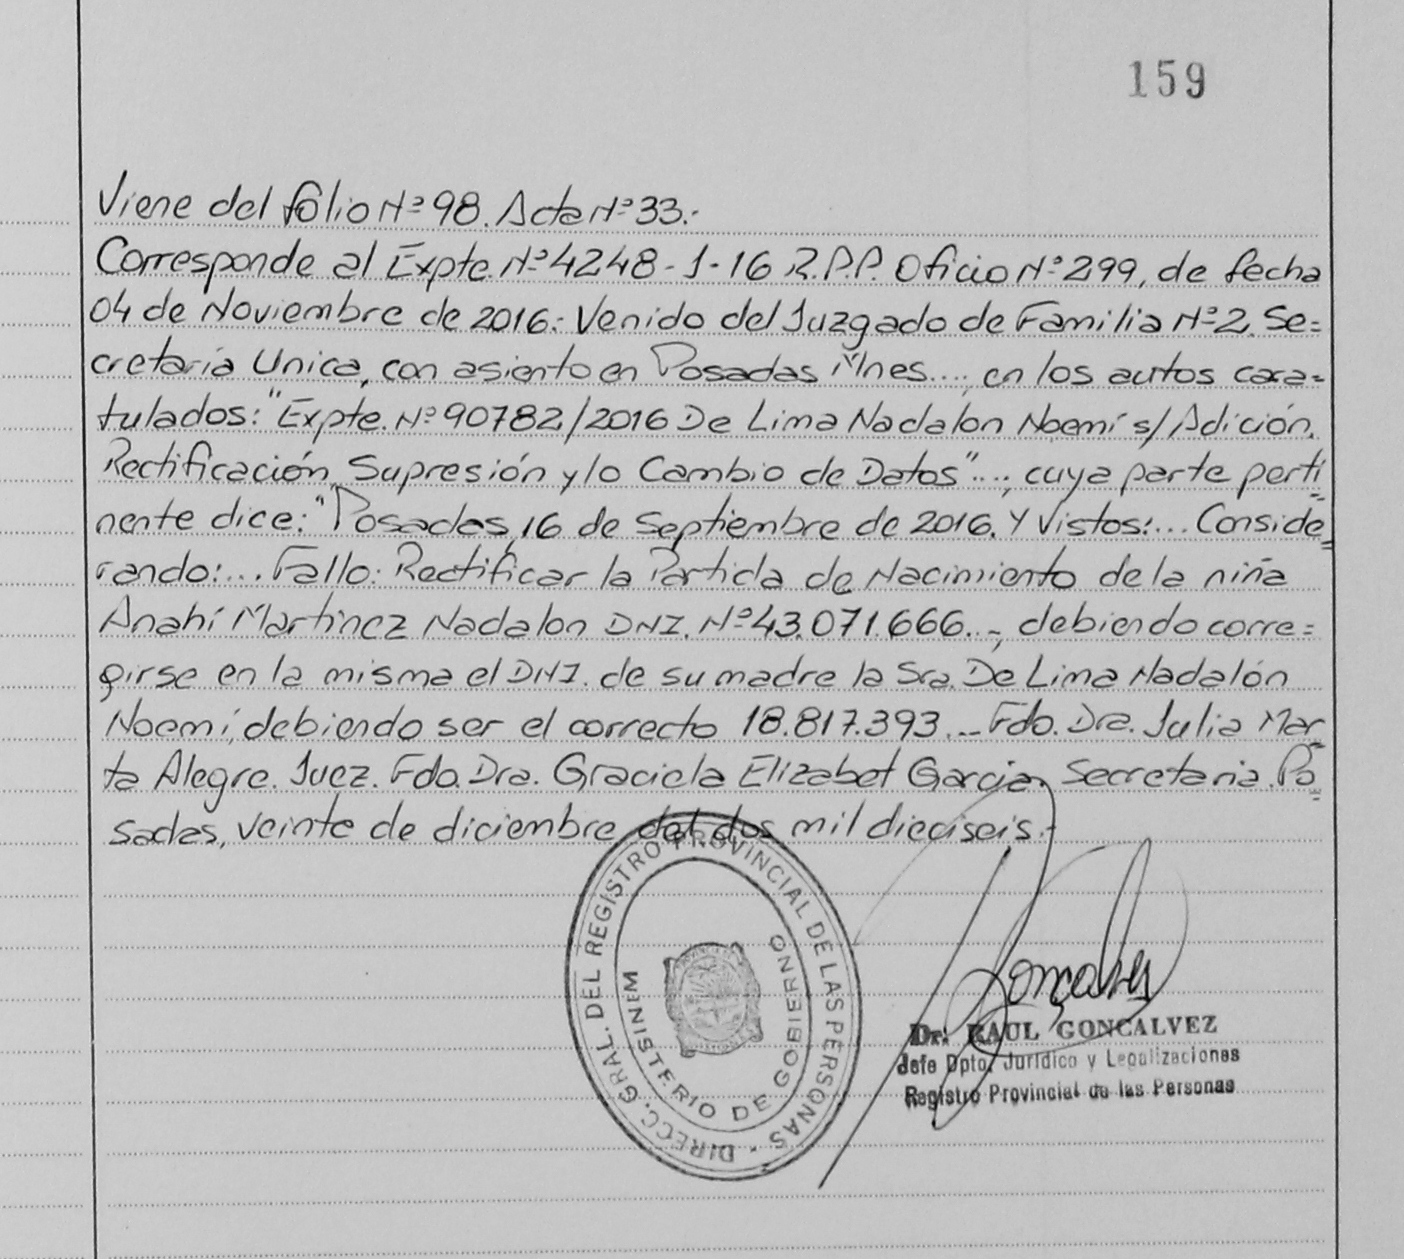 159
Viene del folio Nº 98. Acta Nº 33.-
Corresponde al Expte. Nº 4248-1-16 R.P.P. Oficio Nº 299, de fecha
04 de Noviembre de 2016.- Venido del Juzgado de Familia Nº 2, Se=
cretaría Unica, con asiento en Posadas Mnes..., en los autos cara=
tulados: "Expte. Nº 90782/2016 De Lima Nadalón Noemí s/Adición,
Rectificación, Supresión y/o Cambio de Datos"..., cuya parte perti=
nente dice: "Posadas, 16 de Septiembre de 2016. Y Vistos:... Conside=
rando:... Fallo: Rectificar la Partida de Nacimiento de la niña
Anahí Martinez Nadalon DNI. Nº 43.071.666..., debiendo corre=
girse en la misma el DNI. de su madre la Sra. De Lima Nadalón
Noemí, debiendo ser el correcto 18.817.393... Fdo. Dra. Julia Mar=
ta Alegre. Juez. Fdo. Dra. Graciela Elizabet Garcia. Secretaria. Po=
sadas, veinte de diciembre del dos mil dieciseis.-
DIRECC. GRAL. DEL REGISTRO PROVINCIAL DE LAS PERSONAS
MINISTERIO DE GOBIERNO
Dr. RAUL GONCALVEZ
Jefe Dpto. Jurídico y Legalizaciones
Registro Provincial de las Personas